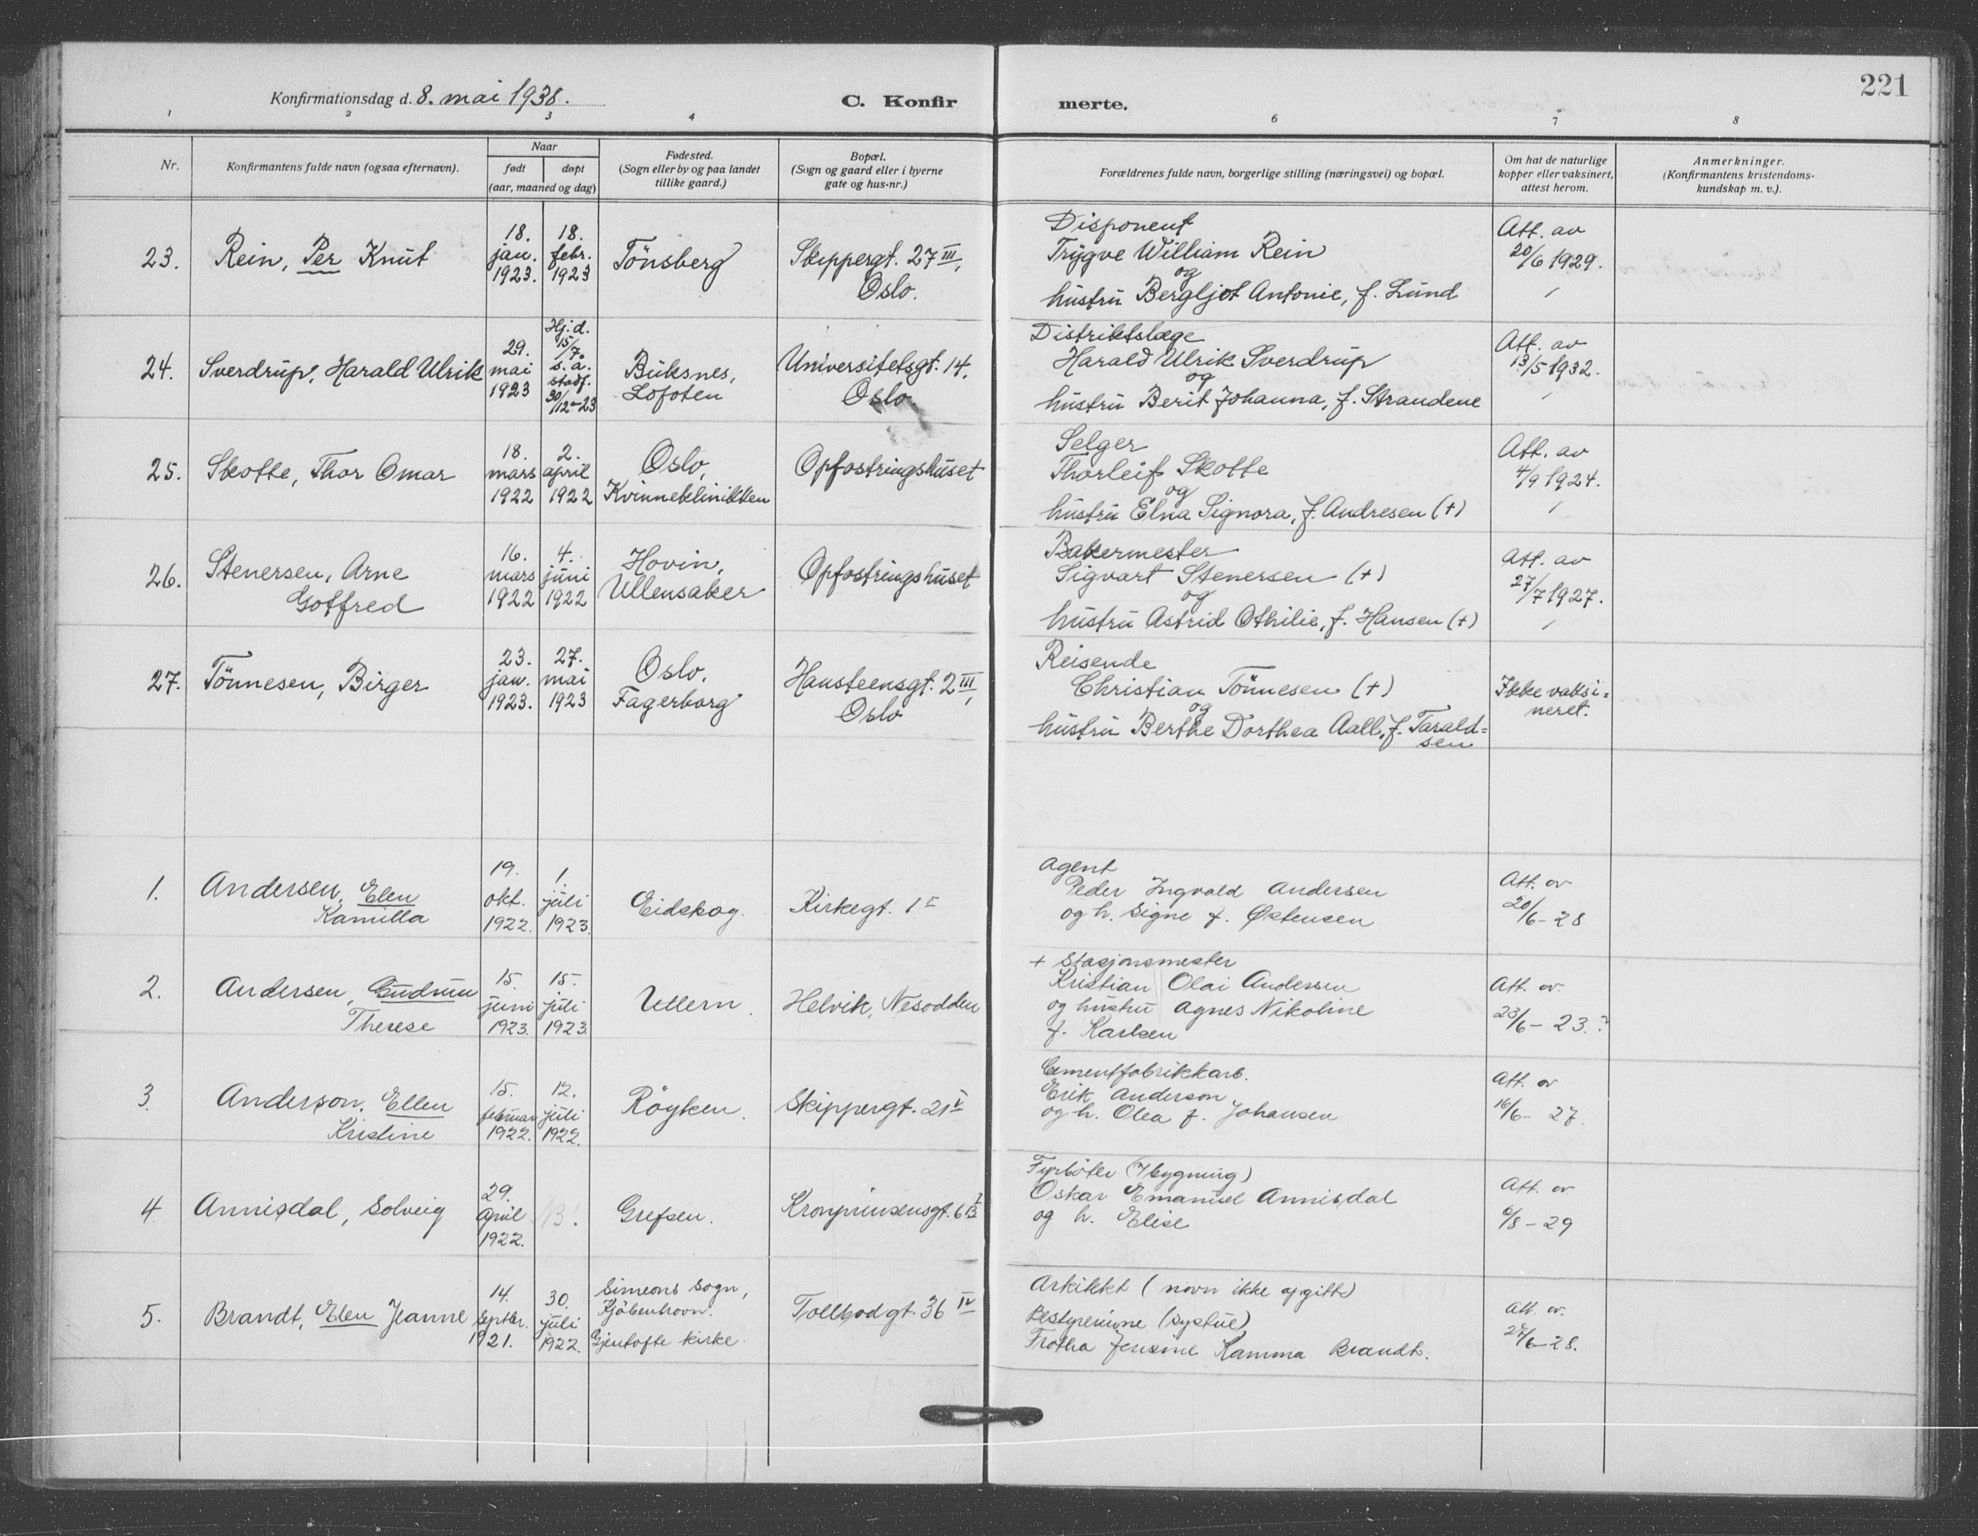 221
Konfirmationsdag d. 8. mai 1938.
C. Konfir
merte.
1 2 3 4 6 7 8
Nr.
Konfirmantens fulde navn (ogsaa efternavn).
Naar
født
døpt
(aar, maaned og dag)
Fødested.
(Sogn eller by og paa landet
tillike gaard.)
Bopæl.
(Sogn og gaard eller i byerne
gate og hus-nr.)
Forældrenes fulde navn, borgerlige stilling (næringsvei) og bopæl.
Om hat de naturlige
kopper eller vaksinert,
attest herom.
Anmerkninger.
(Konfirmantens kristendoms-
kundskap m. v.).
23.
Rein, Per Knut
18.
jan.
1923.
18.
febr.
1923
Tönsberg
Skippergt. 27 III,
Oslo.
Disponent
Trygve William Rein
og
hustru Bergljot Antonie, f. Lund
Att. av
20/6 1929.
24.
Sverdrup, Harald Ulrik
29.
mai
1923
Hj.d.
15/7.
s.a.
stadf.
30/12-23
Buksnes,
Lofoten
Universitetsgt. 14,
Oslo.
Distriktslæge
Harald Ulrik Sverdrup
og
hustru Berit Johanna, f. Strandene
Att. av
13/5 1932.
25.
Skotte, Thor Omar
18.
mars
1922
2.
april
1922
Oslo,
Kvinneklinikken
Opfostringshuset
Selger
Thorleif Skotte
og
hustru Elna Signora, f. Andresen (+)
Att. av
4/9 1924.
26.
Stenersen, Arne
Gotfred
16.
mars
1922
4.
juni
1922
Hovin,
Ullensaker
Opfostringshuset
Bakermester
Sigvart Stenersen (+)
og
hustru Astrid Othilie, f. Hansen (+)
Att. av
27/7 1927.
27.
Tönnesen, Birger
23.
jan.
1923.
27.
mai
1923
Oslo,
Fagerborg
Hansteensgt. 2 III,
Oslo
Reisende
Christian Tönnesen (+)
og
hustru Berthe Dorthea Aall, f. Tarald=
sen
Ikke vaksi=
neret.
1.
Andersen, Elen
Kamilla
19.
okt.
1922.
1.
juli
1923.
Eidskog.
Kirkegt. 1
Agent
Peder Ingvald Andersen
og h. Signe f. Østensen
Att. av
20/6-28
2.
Andersen, Gudrun
Therese
15.
juni
1923.
15.
juli
1923.
Ullern.
Helvik, Nesodden
+ Stasjonsmester
Kristian Olai Andersen
og hustru Agnes Nikoline
f. Karlsen
Att. av
23/6-23.?
3.
Anderson, Ellen
Kristine
15.
februar
1922.
12.
juli
1922.
Röyken.
Skippergt. 21 V
Cementfabrikkarb.
Erik Anderson
og h. Olea f. Johansen
Att. av
16/6-27.
4.
Annisdal, Solveig
29.
April
1922.
Grefsen.
Kronprinsensgt. 6
Fyrböter
Oskar Emanuel Annisdal
og h. Elise
Att. av
6/8-29
5.
Brandt, Elen Jeanne
14.
Septbr.
1921.
30.
juli
1922.
Simeons Sogn,
Kjöbenhavn.
Gjentofte kirke.
Tollbodgt. 36 IV
Arkitekt (navn ikke opgitt)
Bestyrerinne (systue)
Jensine Kamma Brandt.
Att. av
27/6-28.